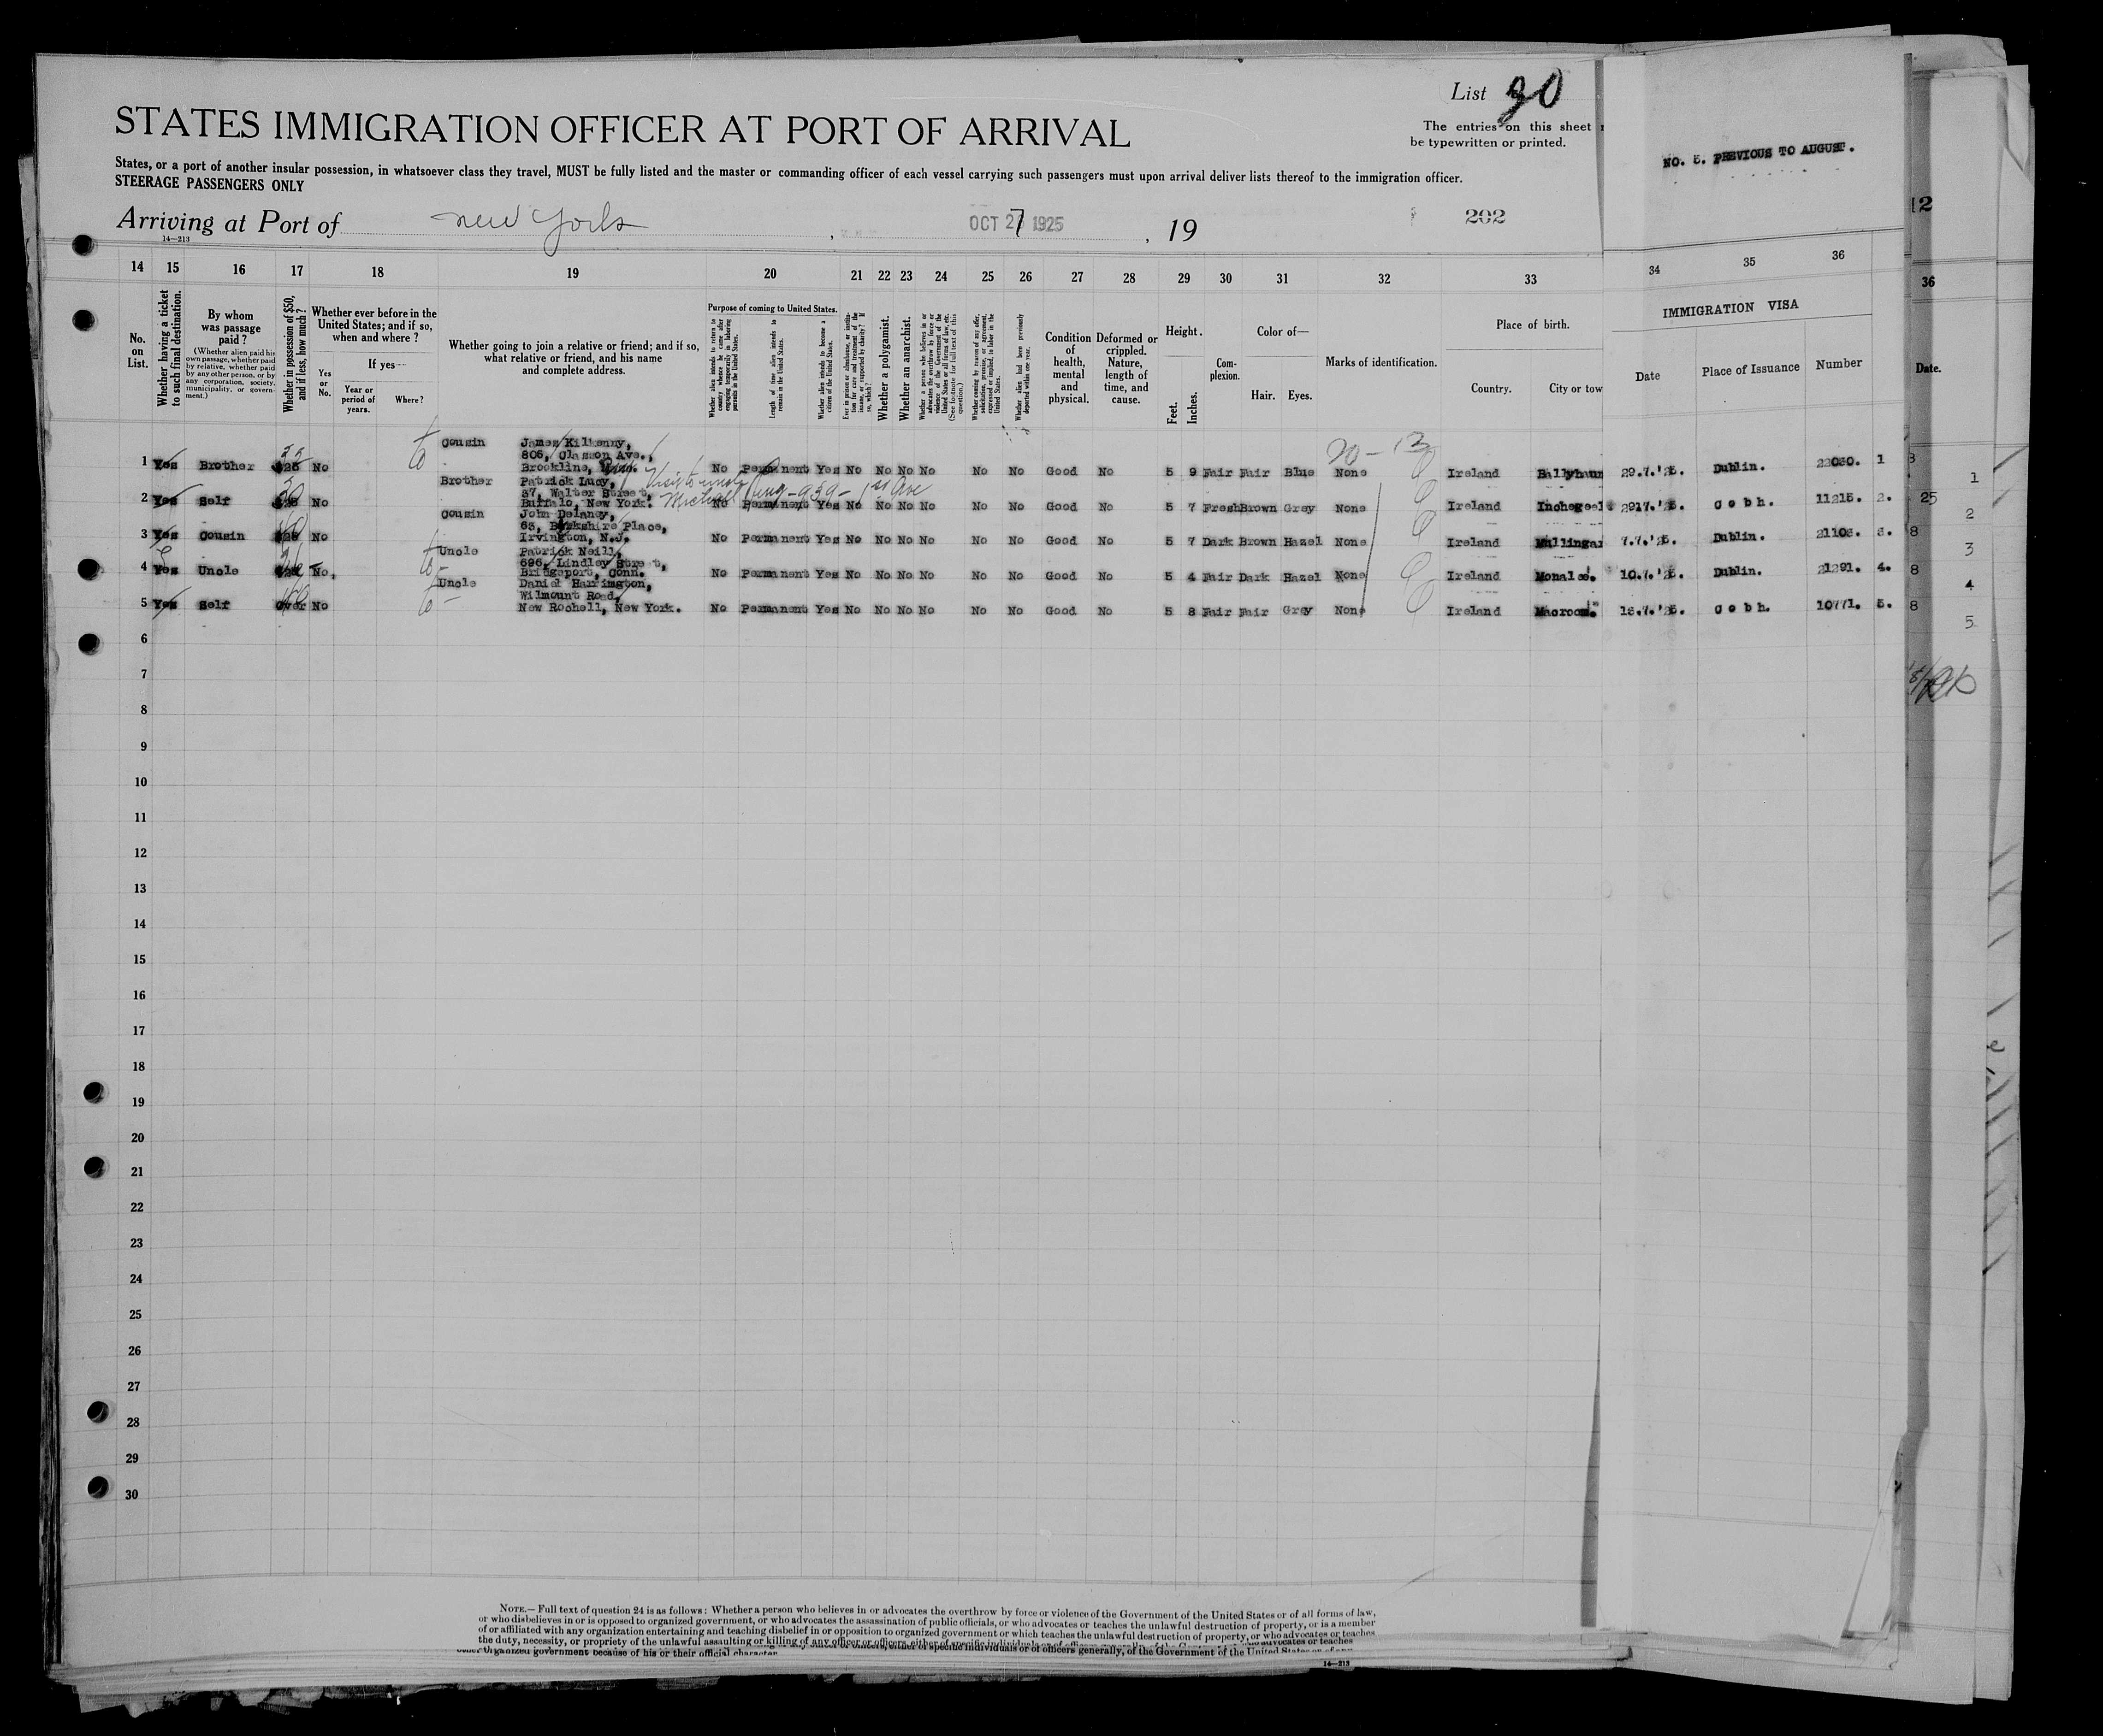 List 30
STATES IMMIGRATION OFFICER AT PORT OF ARRIVAL
The entries on this sheet
be typewritten or printed.
NO. 5. PREVIOUS TO AUGUST.
States, or a port of another insular possession, in whatsoever class they travel, MUST be fully listed and the master or commanding officer of each vessel carrying such passengers must upon arrival deliver lists thereof to the immigration officer.
STEERAGE PASSENGERS ONLY
Arriving at Port of new york, OCT 27 1925, 19 202
14—213
12
14 15 16 17 18 19 20 21 22 23 24 25 26 27 28 29 30 31 32 33 34 35 36
36
No. on List.
Whether having a ticket to such final destination.
By whom was passage paid?
(Whether alien paid his own passage, whether paid by relative, whether paid by any other person, or by any corporation, society, municipality, or government.)
Whether in possession of $50, and if less, how much?
Whether ever before in the United States; and if so, when and where?
Yes or No.
If yes—
Year or period of years.
Where?
Whether going to join a relative or friend; and if so, what relative or friend, and his name and complete address.
Purpose of coming to United States.
Whether alien intends to return to country whence he came after engaging temporarily in laboring pursuits in the United States.
Length of time alien intends to remain in the United States.
Whether alien intends to become a citizen of the United States.
Ever in prison or almshouse, or institution for care and treatment of the insane, or supported by charity? If so, which?
Whether a polygamist.
Whether an anarchist.
Whether a person who believes in or advocates the overthrow by force or violence of the Government of the United States or all forms of law, etc. (See footnote for full text of this question.)
Whether coming by reason of any offer, solicitation, promise, or agreement, expressed or implied, to labor in the United States.
Whether alien had been previously deported within one year.
Condition of health, mental and physical.
Deformed or crippled. Nature, length of time, and cause.
Height.
Feet. Inches.
Complexion.
Color of—
Hair. Eyes.
Marks of identification.
Place of birth.
Country. City or tow
IMMIGRATION VISA
Date Place of Issuance Number
Date.
20-13
Cousin James Kilkenny,
805, Classon Ave.,
1 Yes Brother $25 No Brookline, No Permanent Yes No No No No No No Good No 5 9 Fair Fair Blue None Ireland Ballyhaun 29.7.'25. Dublin. 22050. 1
Brother Patrick Lucy, Visit to uncle
37, Walter Street, Michael 959 - 1st Ave
2 Yes Self No Buffalo, New York. No Permanent Yes No No No No No No Good No 5 7 Fresh Brown Grey None Ireland Inchegeel 2917.'25. Cobh. 11215. 2. 25
Cousin John Delaney,
63, Berkshire Place,
3 Yes Cousin $25 No Irvington, N.J. No Permanent Yes No No No No No No Good No 5 7 Dark Brown Hazel None Ireland Mullingar 7.7.'25. Dublin. 21103. 3. 8
Uncle Patrick Neill,
696, Lindley Street,
4 Yes Uncle No. Bridgeport, Conn. No Permanent Yes No No No No No No Good No 5 4 Fair Dark Hazel None Ireland 10.7.'25. Dublin. 21291. 4. 8
Uncle Daniel Harrington,
Wilmount Road,
5 Yes Self Over No New Rochell, New York. No Permanent Yes No No No No No No Good No 5 8 Fair Fair Grey None Ireland Macroom. Cobh. 10771. 5. 8
1
2
3
4
5
6
7
8
9
10
11
12
13
14
15
16
17
18
19
20
21
22
23
24
25
26
27
28
29
30
NOTE.—Full text of question 24 is as follows: Whether a person who believes in or advocates the overthrow by force or violence of the Government of the United States or of all forms of law,
or who disbelieves in or is opposed to organized government, or who advocates the assassination of public officials, or who advocates or teaches the unlawful destruction of property, or is a member
of or affiliated with any organization entertaining and teaching disbelief in or opposition to organized government or which teaches the unlawful destruction of property, or who advocates or teaches
the duty, necessity, or propriety of the unlawful assaulting or killing of any officer or officers, either of specific individuals or of officers generally, of the Government of the United States
organized government because of his or their official character
14—213